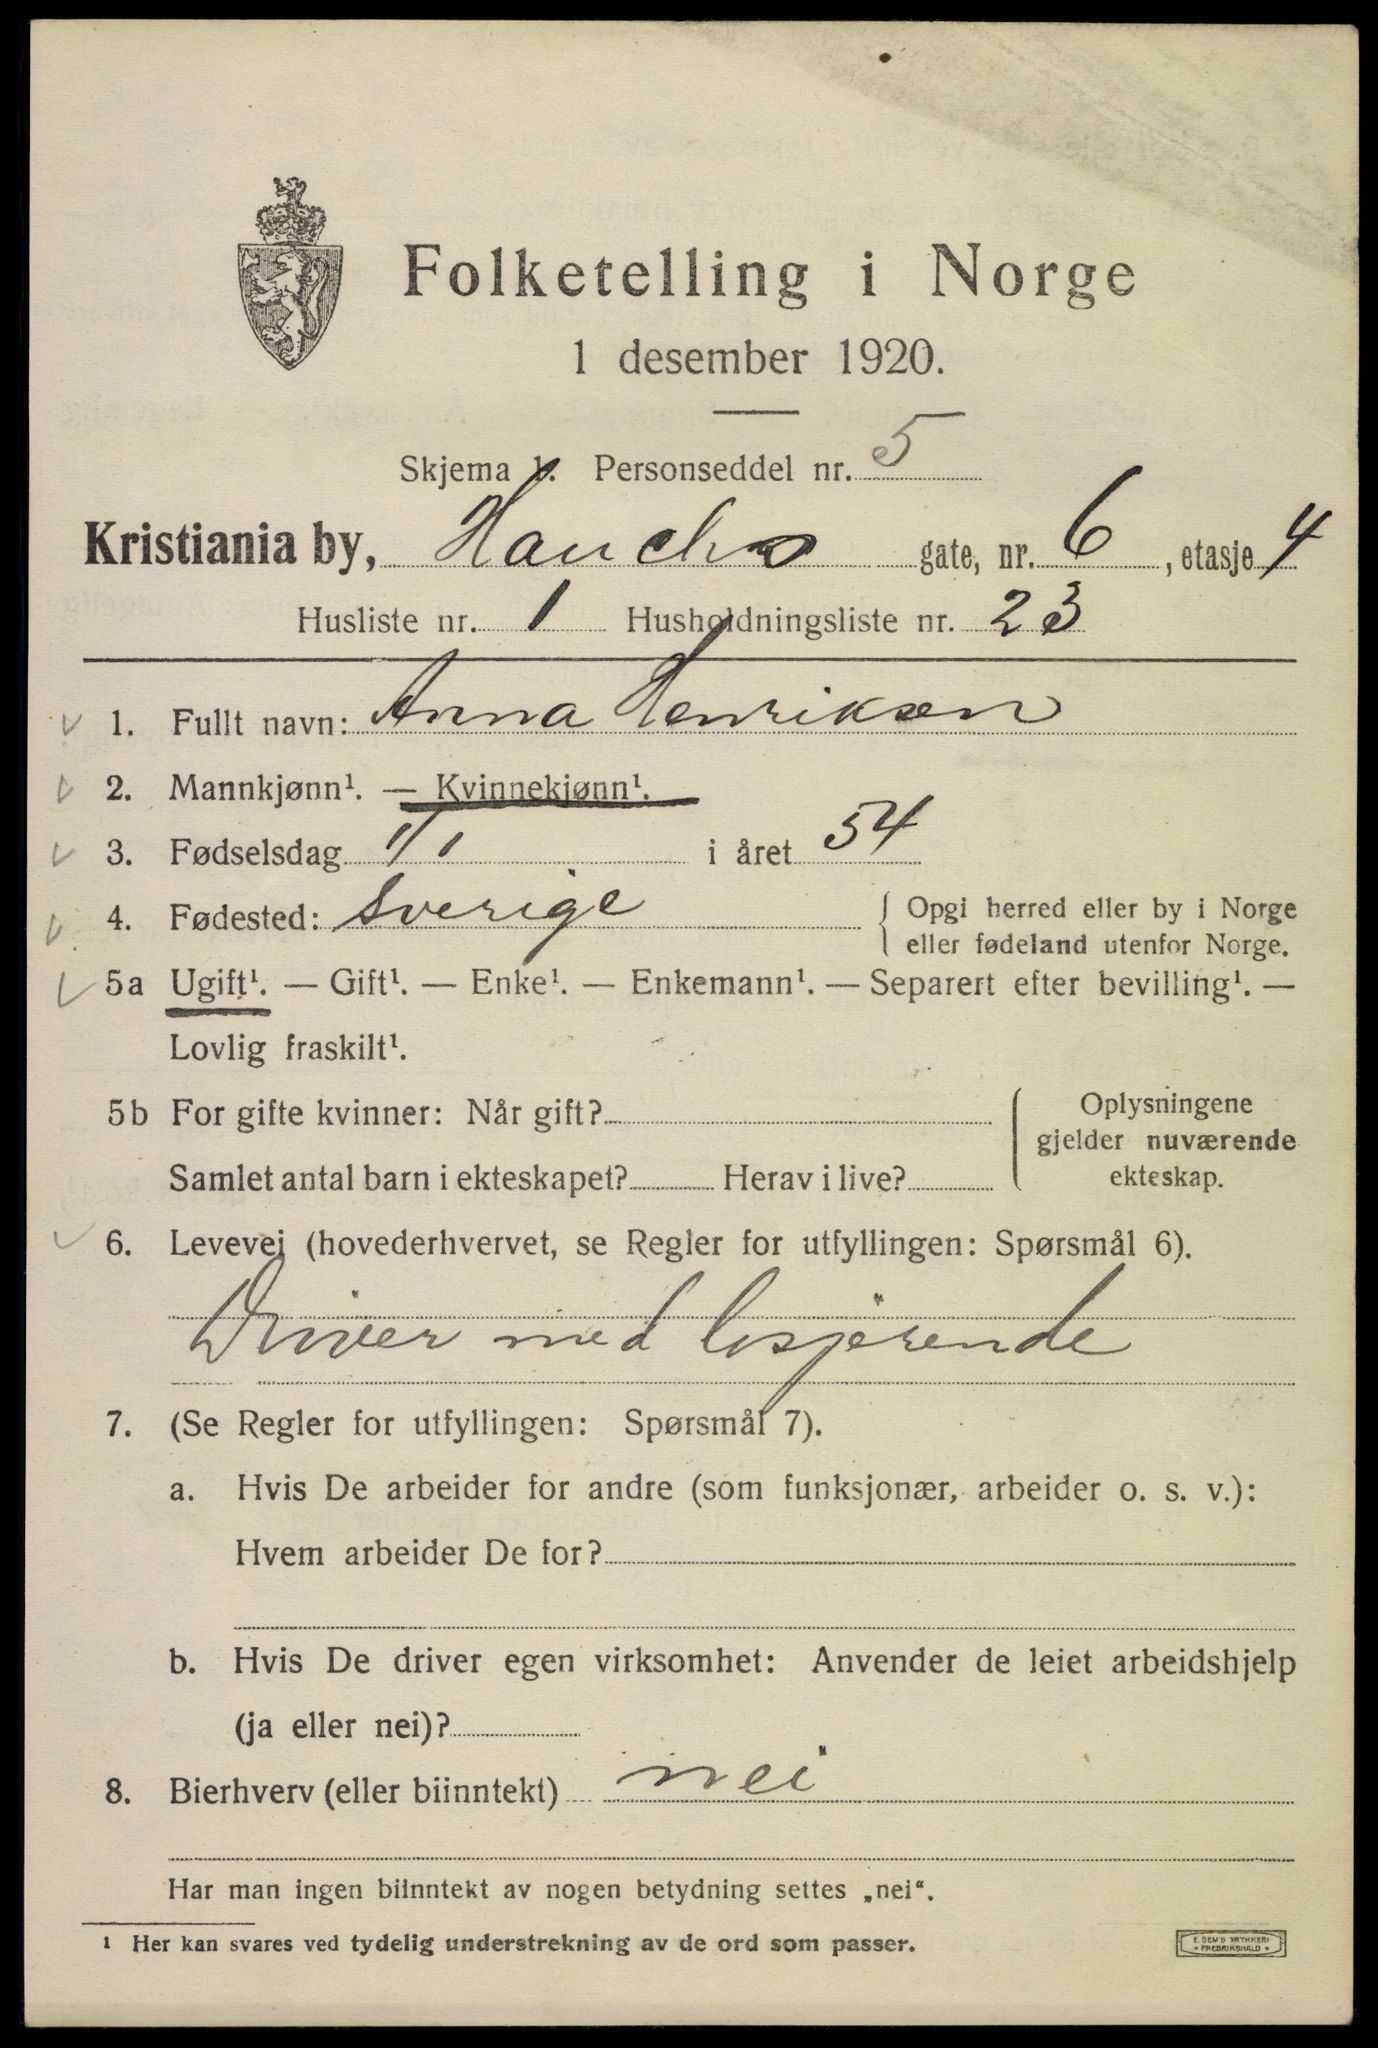 Folketelling i Norge
1 desember 1920.
Skjema 1. Personseddel nr. 5
Kristiania by, Hauchs gate, nr. 6, etasje 4
Husliste nr. 1 Husholdningsliste nr. 23
1. Fullt navn: Anna Henriksen
2. Mannkjønn¹. — Kvinnekjønn¹.
3. Fødselsdag 1/1 i året 54
4. Fødested: Sverige { Opgi herred eller by i Norge
eller fødeland utenfor Norge.
5a Ugift¹. — Gift¹. — Enke¹. — Enkemann¹. — Separert efter bevilling¹. —
Lovlig fraskilt¹.
5b For gifte kvinner: Når gift? Oplysningene
gjelder nuværende
Samlet antal barn i ekteskapet? Herav i live? ekteskap.
6. Levevei (hovederhvervet, se Regler for utfyllingen: Spørsmål 6).
Driver med losjerende
7. (Se Regler for utfyllingen: Spørsmål 7).
a. Hvis De arbeider for andre (som funksjonær, arbeider o. s. v.):
Hvem arbeider De for?
b. Hvis De driver egen virksomhet: Anvender de leiet arbeidshjelp
(ja eller nei)?
8. Bierhverv (eller biinntekt) nei
Har man ingen biinntekt av nogen betydning settes „nei“.
¹ Her kan svares ved tydelig understrekning av de ord som passer.
E. SEM'S TRYKKERI
FREDRIKSHALD